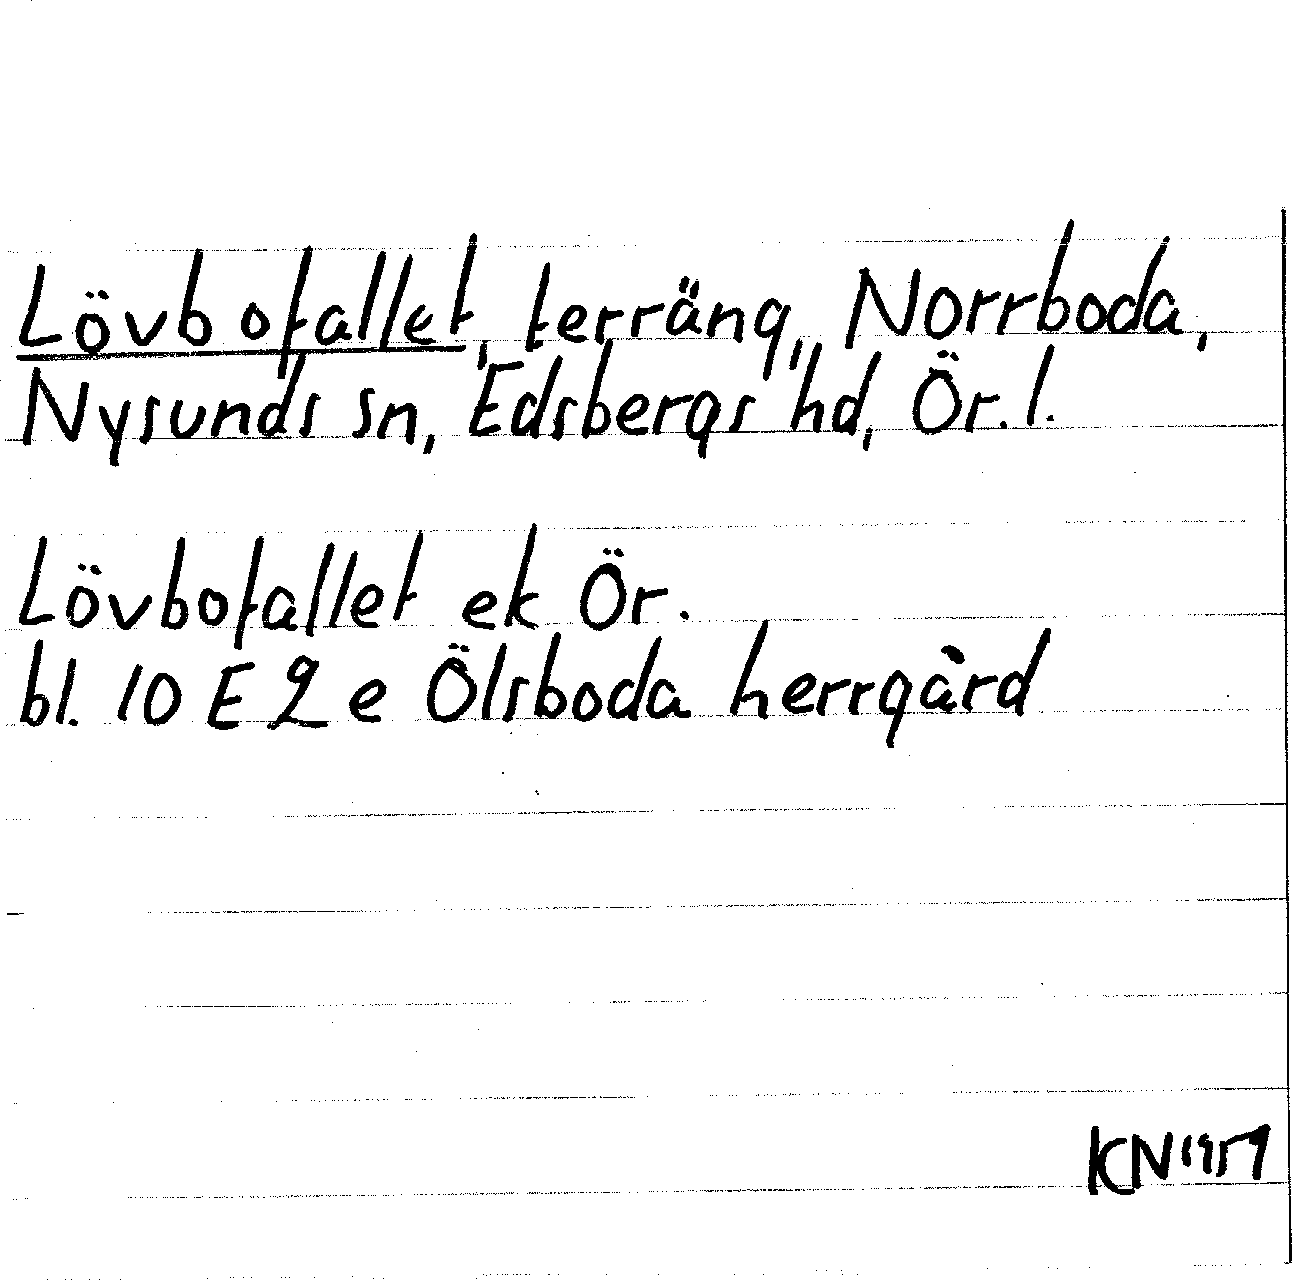 Lövbofallet, terräng, Norrboda,
Nysunds sn, Edsbergs hd, Ör. l.
Lövbofallet ek Ör.
bl. 10 E 2 e Ölsboda herrgård
KN